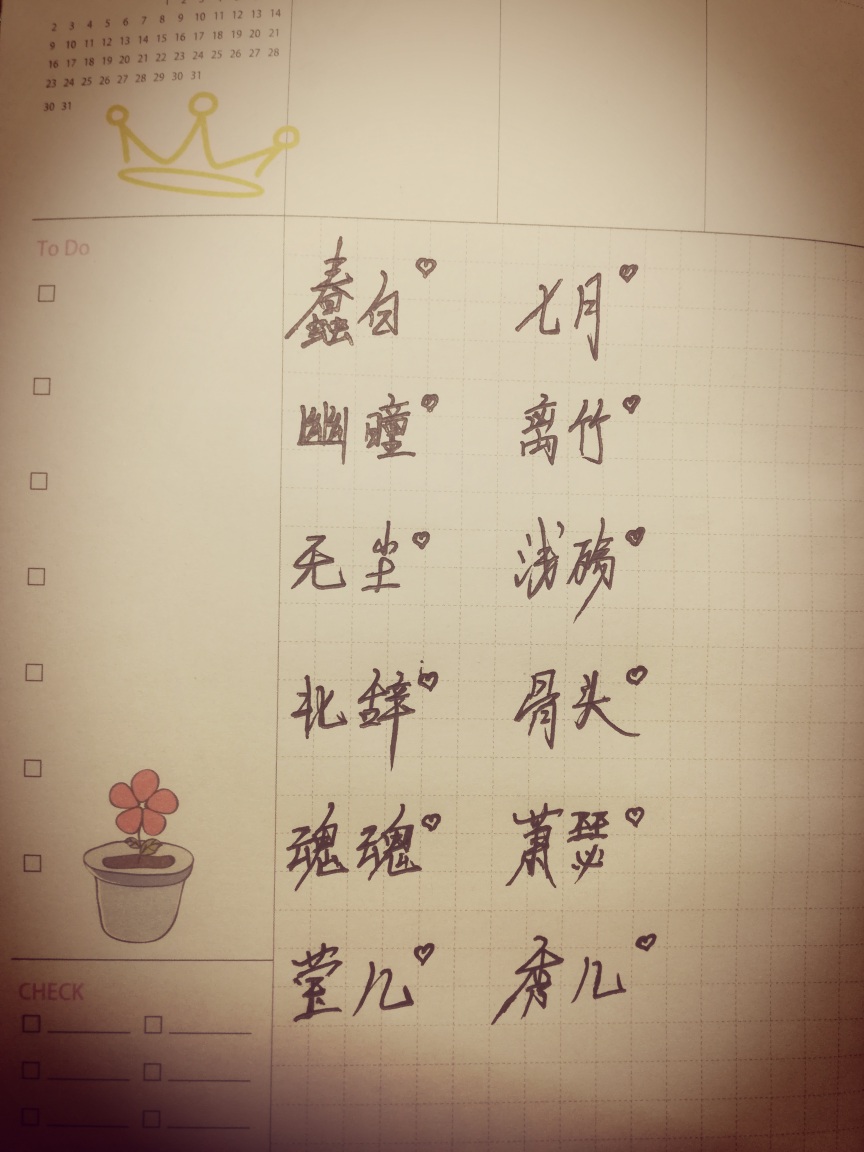 1 2 3 4 5 6 7
2 3 4 5 6 7 8 9 10 11 12 13 14
9 10 11 12 13 14 15 16 17 18 19 20 21
16 17 18 19 20 21 22 23 24 25 26 27 28
23 24 25 26 27 28 29 30 31
30 31
To Do
蠢白♡ 七月♡
幽瞳♡ 离竹♡
无尘♡ 浅�磅♡
北辞♡ 骨头♡
魂魂♡ 萧瑟♡
莹儿♡ 秀儿♡
CHECK